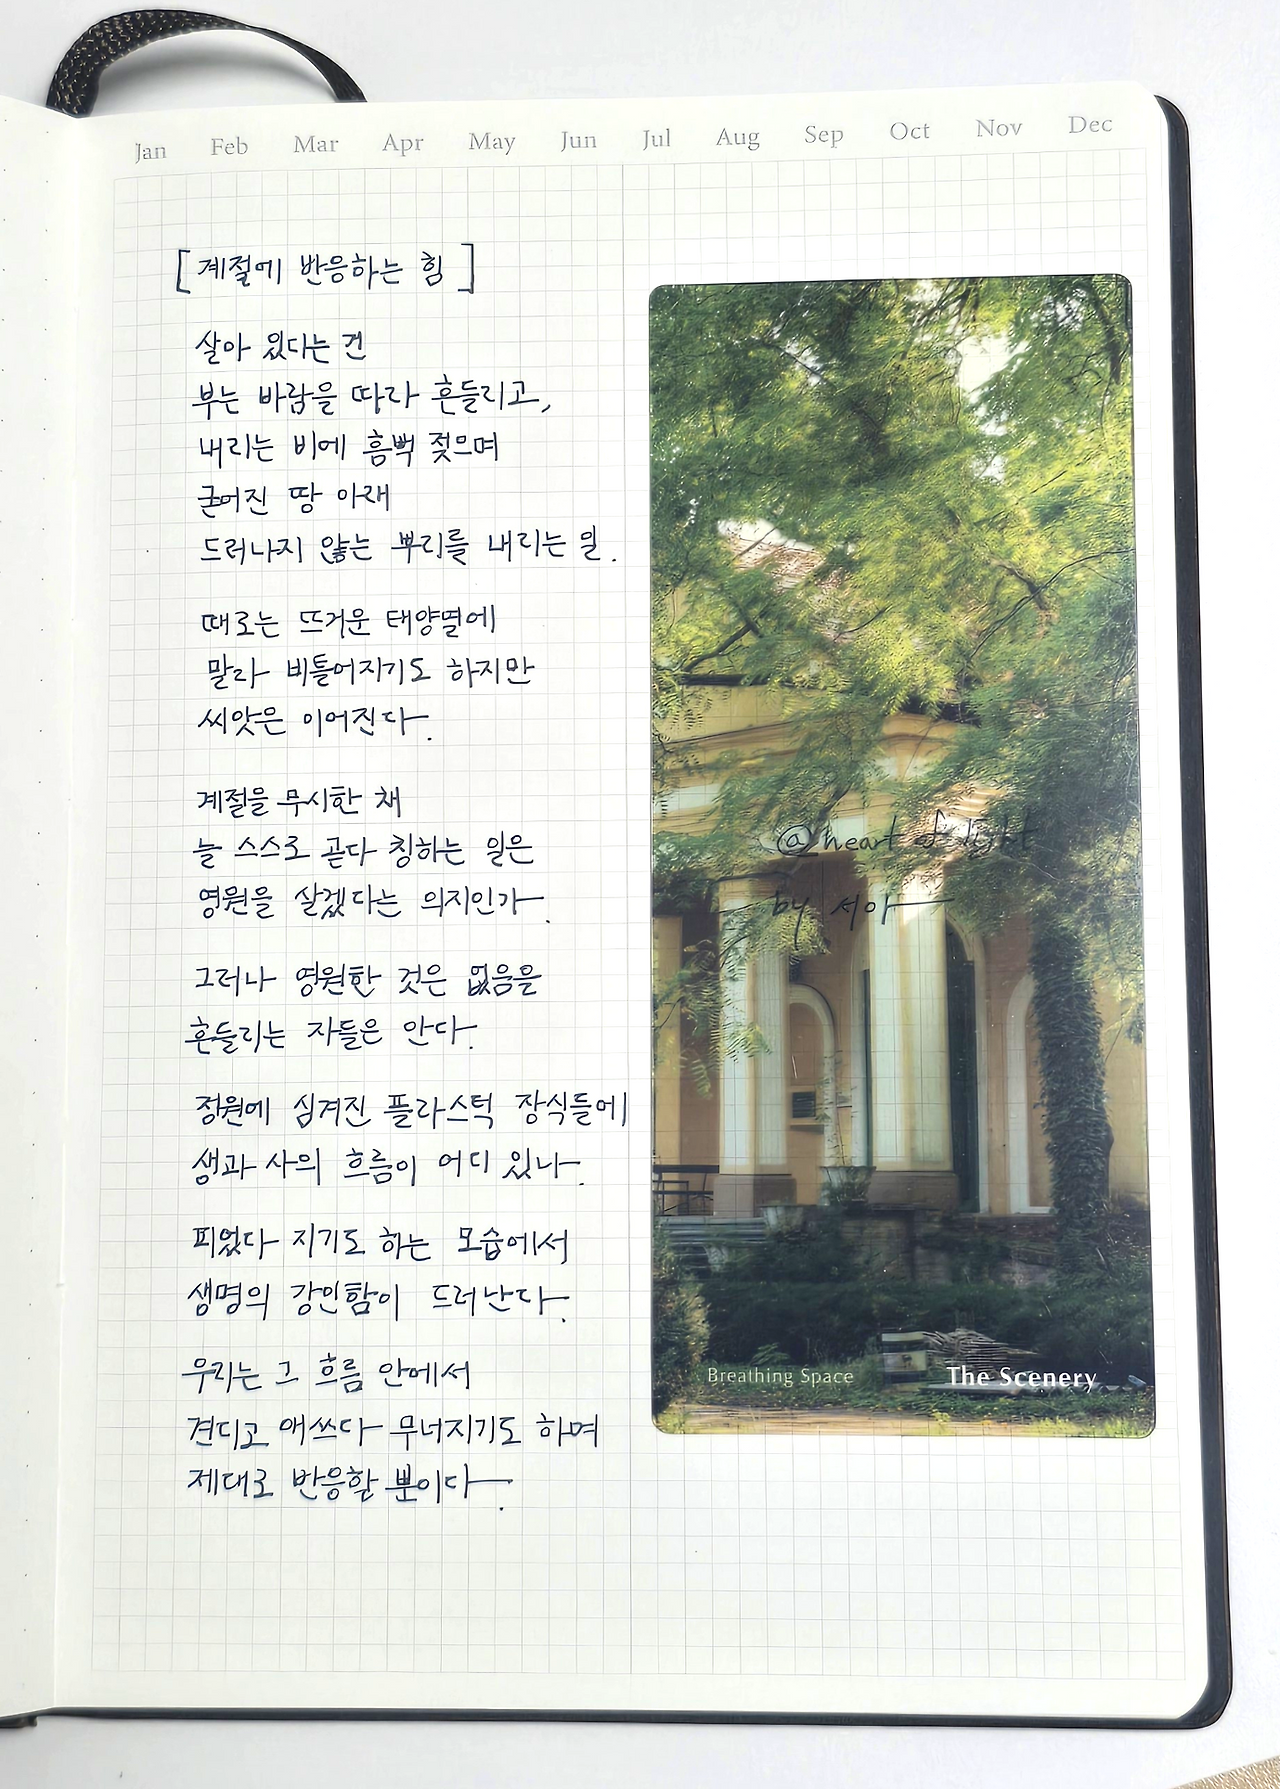 Jan Feb Mar Apr May Jun Jul Aug Sep Oct Nov Dec
[계절에 반응하는 힘]
살아 있다는 건
부는 바람을 따라 흔들리고,
내리는 비에 흠뻑 젖으며
굳어진 땅 아래
드러나지 않는 뿌리를 내리는 일.
때로는 뜨거운 태양열에
말라 비틀어지기도 하지만
씨앗은 이어진다.
계절을 무시한 채
늘 스스로 곧다 칭하는 일은
영원을 살겠다는 의지인가.
그러나 영원한 것은 없음을
흔들리는 자들은 안다.
정원에 심겨진 플라스틱 장식들에
생과 사의 흐름이 어디 있나.
피었다 지기도 하는 모습에서
생명의 강인함이 드러난다.
우리는 그 흐름 안에서
견디고 애쓰다 무너지기도 하며
제대로 반응할 뿐이다.
@heart of light
by 서아
Breathing Space
The Scenery